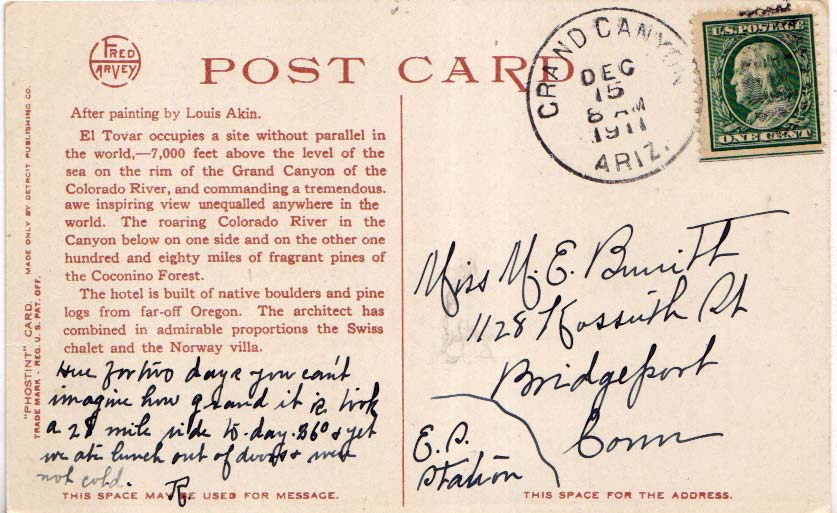 FRED HARVEY
POST CARD
GRAND CANYON
DEC
15
8 AM
1911
ARIZ.
U.S. POSTAGE
ONE CENT
"PHOSTINT" CARD. MADE ONLY BY DETROIT PUBLISHING CO.
TRADE MARK - REG. U.S. PAT. OFF.
After painting by Louis Akin.
El Tovar occupies a site without parallel in
the world,—7,000 feet above the level of the
sea on the rim of the Grand Canyon of the
Colorado River, and commanding a tremendous.
awe inspiring view unequalled anywhere in the
world. The roaring Colorado River in the
Canyon below on one side and on the other one
hundred and eighty miles of fragrant pines of
the Coconino Forest.
The hotel is built of native boulders and pine
logs from far-off Oregon. The architect has
combined in admirable proportions the Swiss
chalet and the Norway villa.
Here for two days you can't
imagine how grand it is took
a 28 mile ride to-day 36° & yet
we ate lunch out of doors & were
not cold.
THIS SPACE MAY BE USED FOR MESSAGE.
Miss M. E.
1128 Kossuth St
Bridgeport
Conn
E. S.
Station
THIS SPACE FOR THE ADDRESS.